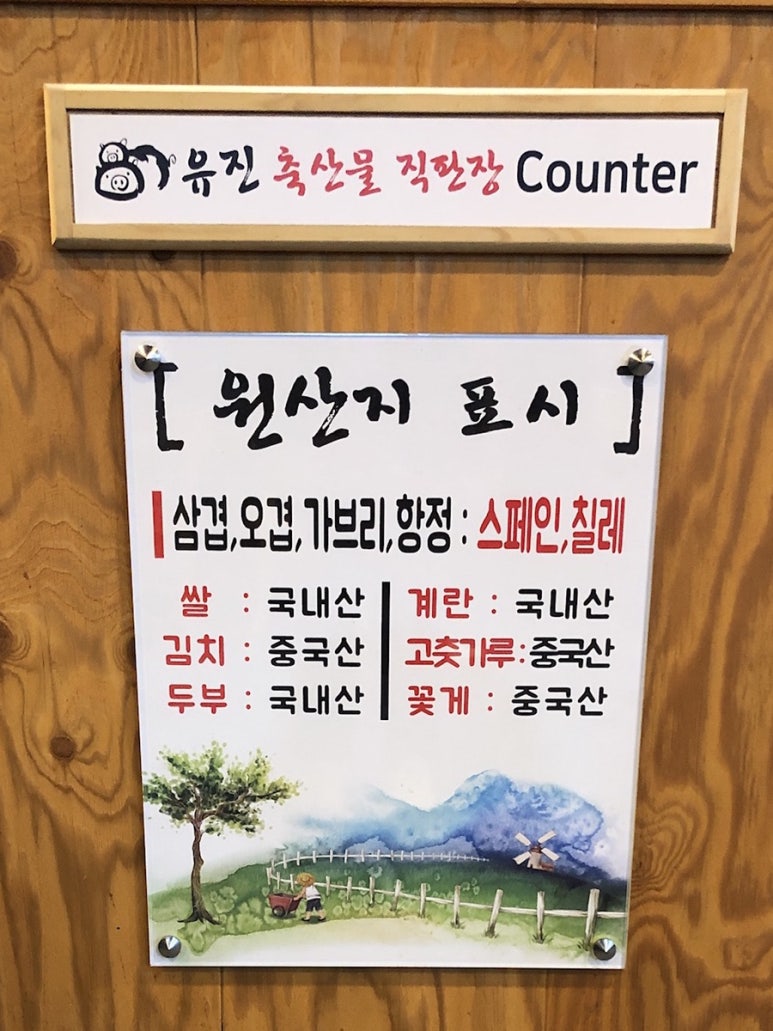 유진 축산물 직판장 Counter
[ 원산지 표시 ]
삼겹,오겹,가브리,항정 : 스페인,칠레
쌀 : 국내산
김치 : 중국산
두부 : 국내산
계란 : 국내산
고춧가루 : 중국산
꽃게 : 중국산